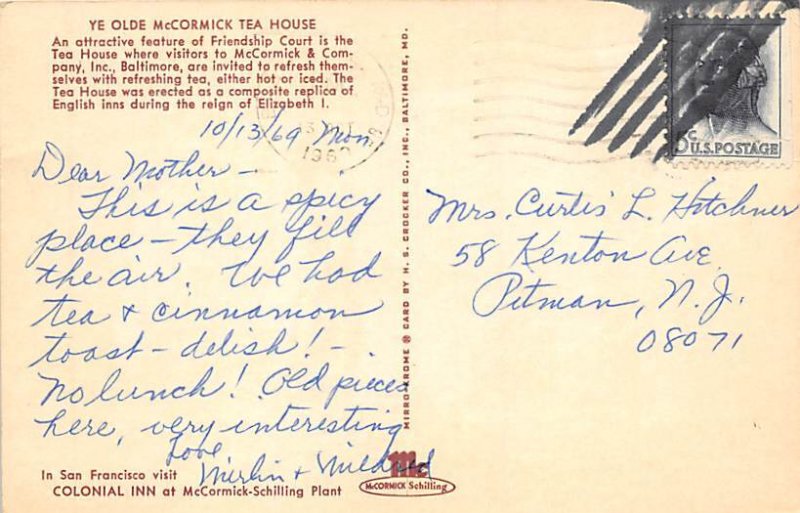 YE OLDE McCORMICK TEA HOUSE
An attractive feature of Friendship Court is the
Tea House where visitors to McCormick & Com-
pany, Inc., Baltimore, are invited to refresh them-
selves with refreshing tea, either hot or iced. The
Tea House was erected as a composite replica of
English inns during the reign of Elizabeth I.
10/13/69 Mon.
Dear Mother -
This is a spicy
place - they fill
the air. We had
tea & cinnamon
toast - delish! -
No lunch! Old pieces
here, very interesting
Love
Merlin & Mildred
In San Francisco visit
COLONIAL INN at McCormick-Schilling Plant
MIRRO-KROME ® CARD BY H. S. CROCKER CO., INC., BALTIMORE, MD.
Mc
McCORMICK Schilling
5c
U.S. POSTAGE
Mrs. Curtis L. Hotchner
58 Kenton Ave
Pitman, N. J.
08071